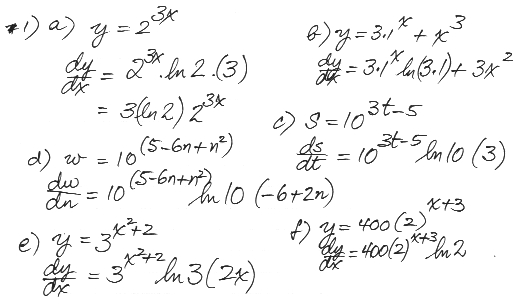 *1) a) y = 2^{3x}
dy/dx = 2^{3x} · ln 2 · (3)
= 3(ln 2) 2^{3x}
b) y = 3.1^x + x^3
dy/dx = 3.1^x ln(3.1) + 3x^2
c) S = 10^{3t-5}
ds/dt = 10^{3t-5} ln 10 (3)
d) w = 10^{(5-6n+n^2)}
dw/dn = 10^{(5-6n+n^2)} ln 10 (-6+2n)
e) y = 3^{x^2+2}
dy/dx = 3^{x^2+2} ln 3 (2x)
f) y = 400(2)^{x+3}
dy/dx = 400(2)^{x+3} ln 2